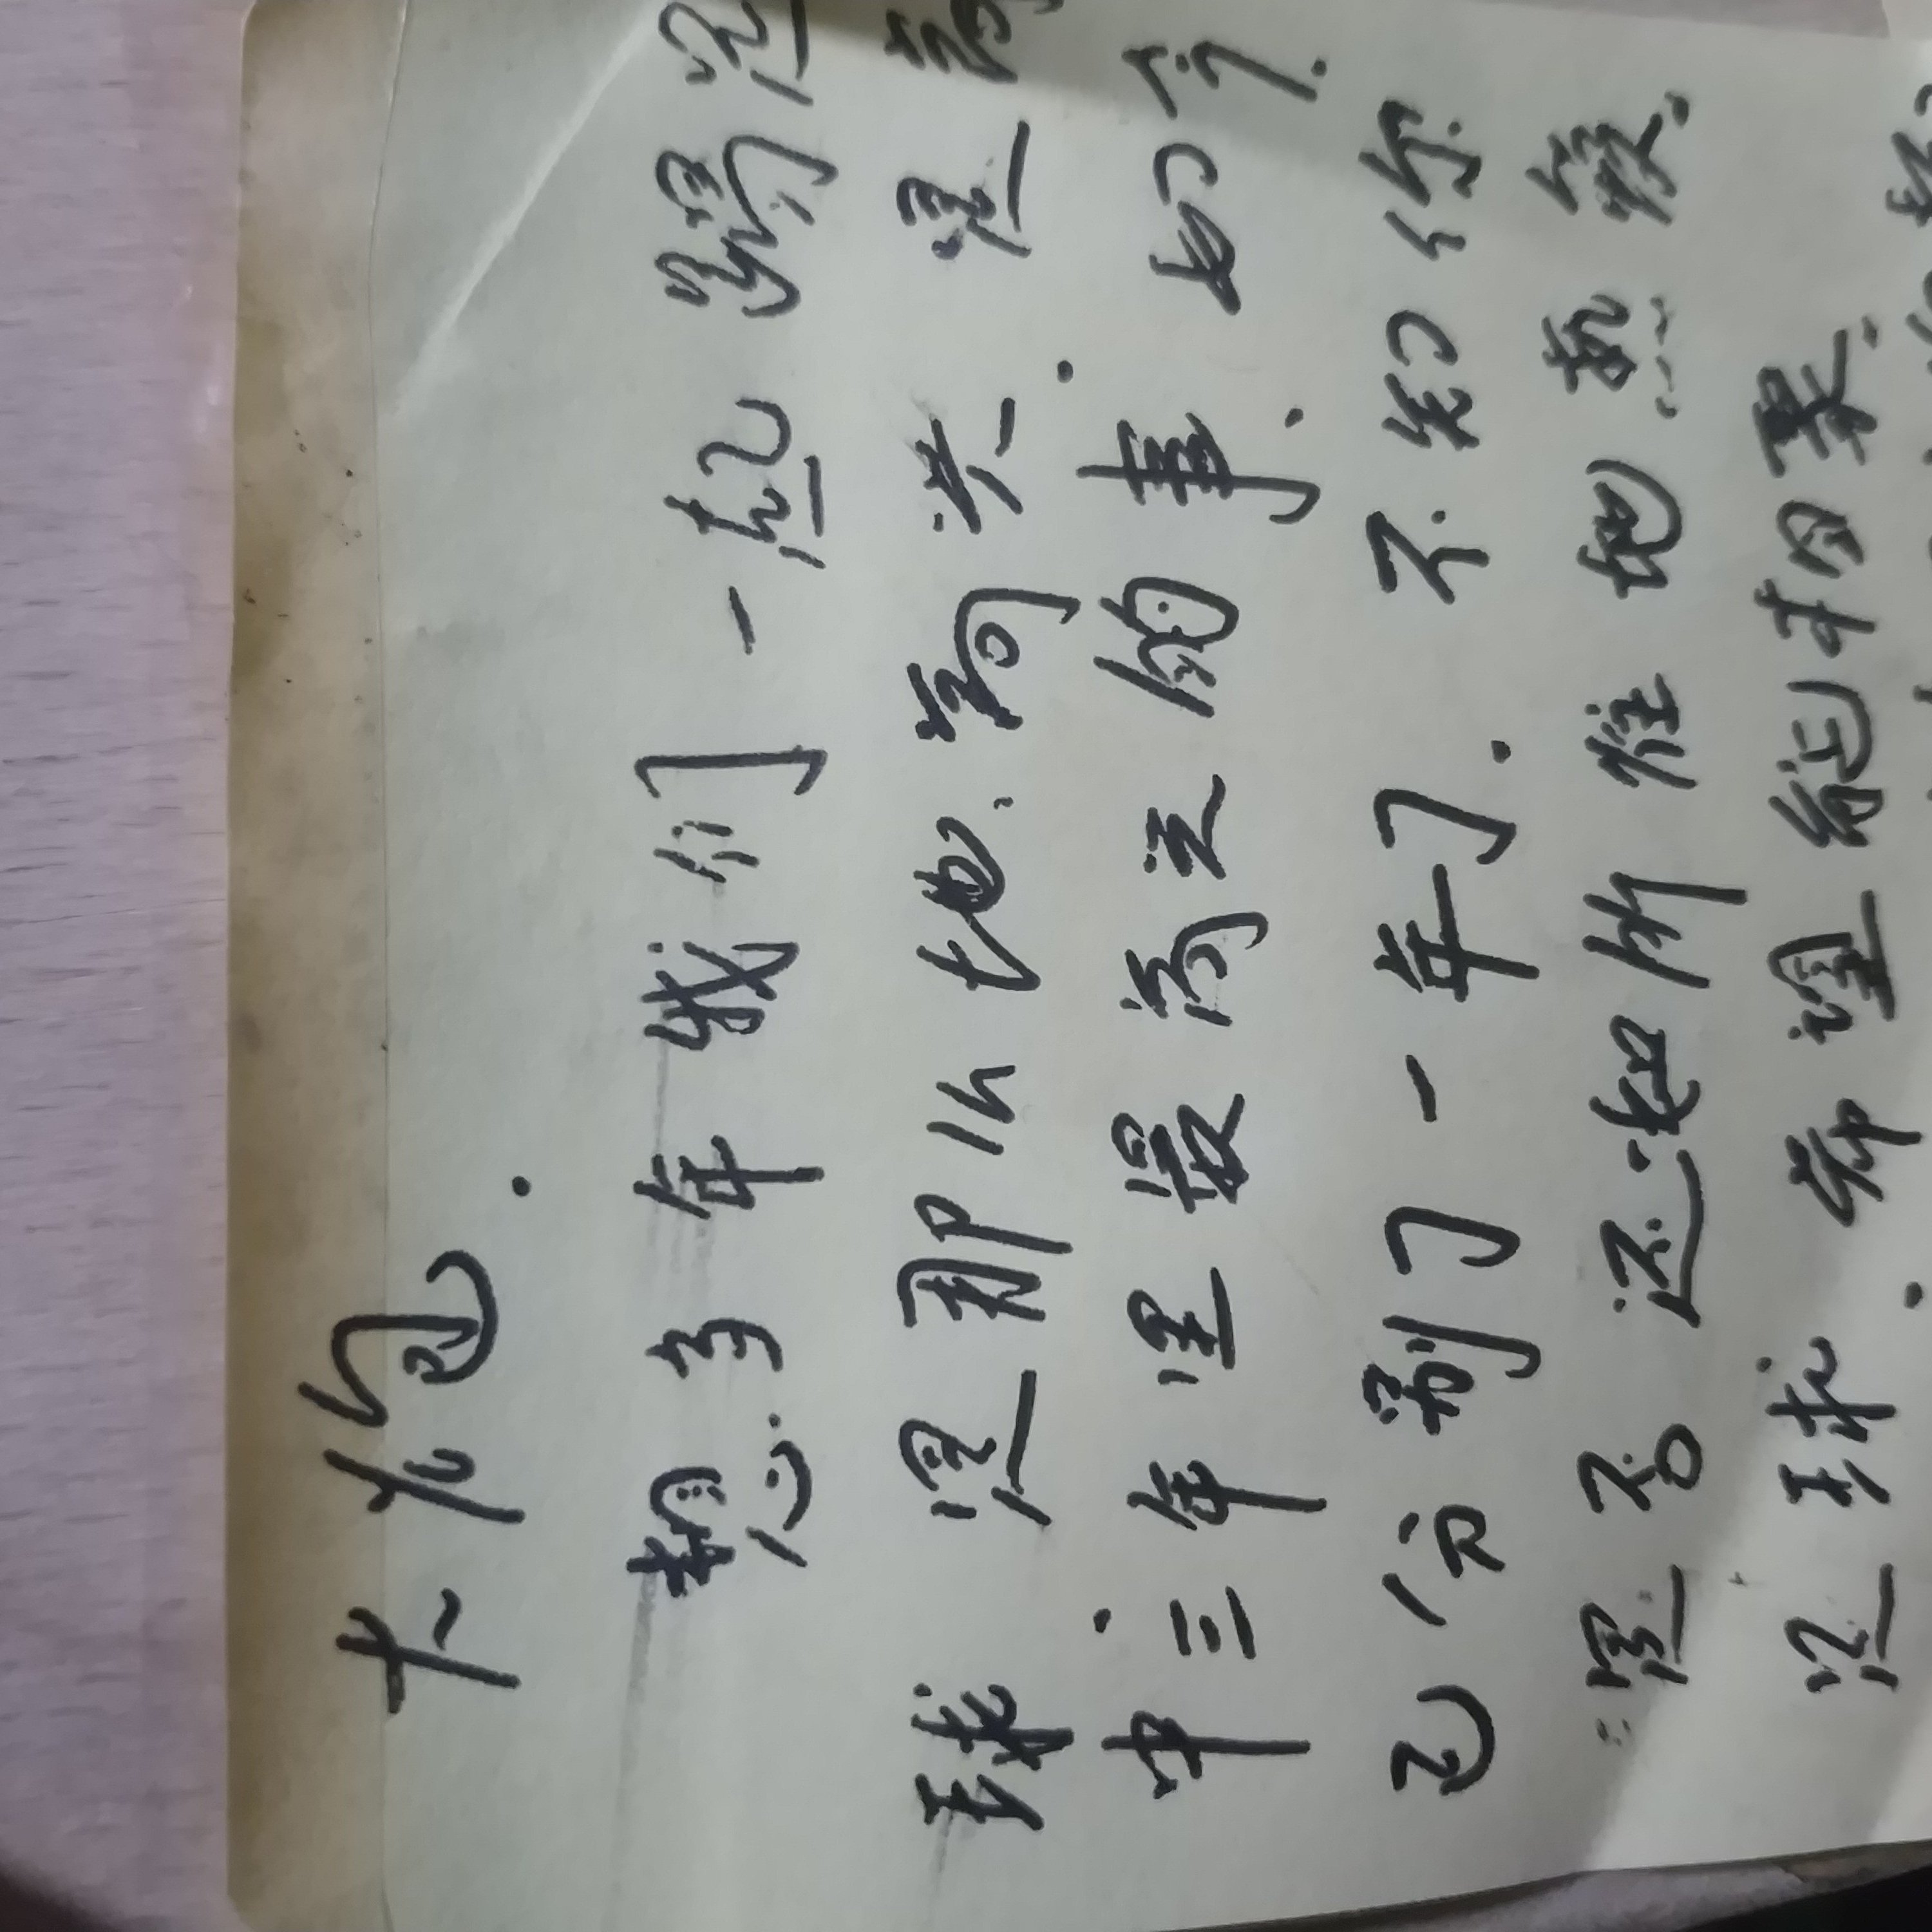 大炮.
想多年我们一起踢足
球是那么地高兴.是高
中三年里最高兴的事.如今.
已分别了一年了.不知你
是否还如所往地热爱.
足球.希望能相聚.